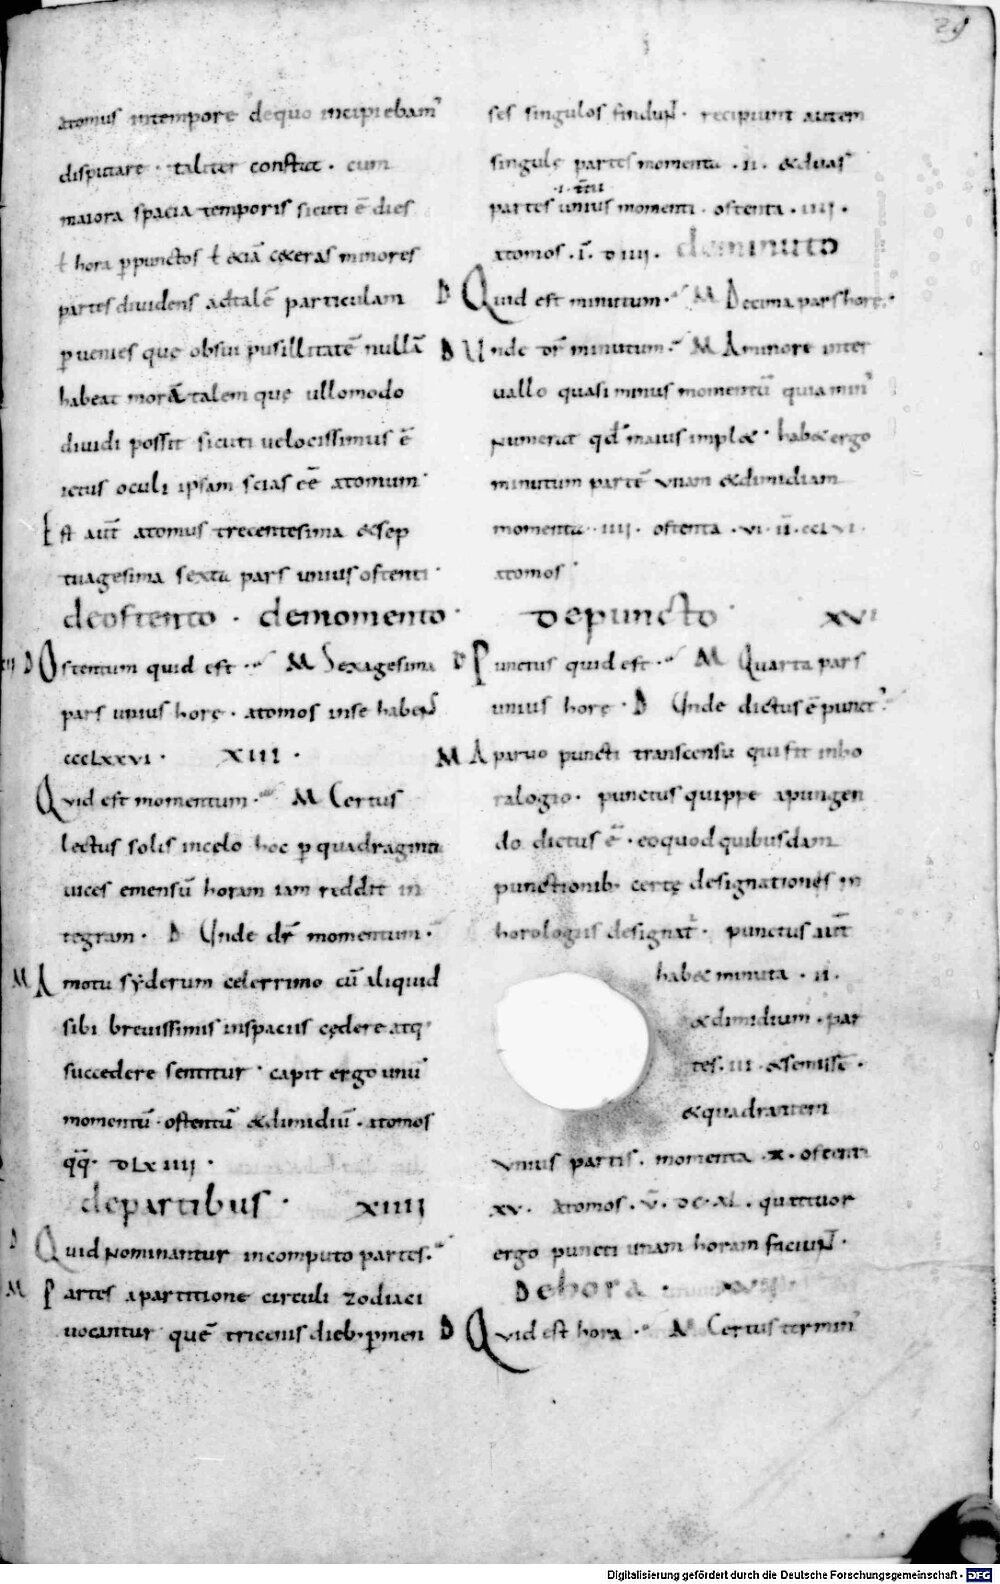 29
atomus intempore dequo incipiebam᾽
disputare · taliter constat · cum
maiora spacia temporis sicuti ē dies
ł hora ꝑpunctos ł &iā c&eras minores
partes diuidens adtalē particulam
ꝑuenies que obsui pusillitatē nullā
habeat morā talem quę ullomodo
diuidi possit sicuti uelocissimus ē
ictus oculi ipsam scias eē atomum
Est aut̄ atomus trecentesima &sep
tuagesima sexta pars unius ostenti ·
deostento · demomento ·
D Ostentum quid est · M Sexagesima
pars unius horę · atomos inse haben̄t
ccclxxvi · XIII ·
Quid est momentum · M Certus
lectus solis incelo hoc ꝑ quadraginta
uices emensū horam iam reddit in
tegram · D Unde dr̄ momentum ·
M A motu syderum celerrimo cū aliquid
sibi breuissimis inspaciis cędere atq·
succedere sentitur · capit ergo unū
momentū · ostentū &dimidiū · atomos
qq̄· DLXIIII ·
departibus · XIIII
D Quid Nominantur incomputo partes ·
M Partes apartitione circuli zodiaci
uocantur quē tricenis dieb· ꝑmen
ses singulos findun̄t · recipiunt autem
singulę partes momenta · II · &duas
·i· t̄tia
partes unius momenti · ostenta · IIII ·
atomos · ī · DIIII · deminuto
D Quid est minutum · M Decima pars horę ·
D Unde dr̄ minutum · M A minore inter
uallo quasi minus momentū quia min᾽
Numerat qd̄ maius impl& · hab& ergo
minutum partē unam &dimidiam
momenta · IIII · ostenta · VI · IĪ · CCLVI ·
atomos ·
Depuncto · XVI
D Punctus quid est · M Quarta pars
unius horę · D Unde dictus ē punct᾽
M A paruo puncti transcensu qui fit inho
ralogio · punctus quippe apungen
do dictus ē · eoquod quibusdam
punctionib· certę designationes in
horologiis designat᾽ · punctus aut̄
hab& minuta · II ·
&dimidium · par
tes · III · &semisē ·
&quadrantem
unius partis · momenta · X · ostenta
XV · Atomos · V̄ · DC · XL · quattuor
ergo puncti unam horam faciun̄t ·
Dehora ·
D Quid est hora · M Certus termin᾽
Digitalisierung gefördert durch die Deutsche Forschungsgemeinschaft · DFG